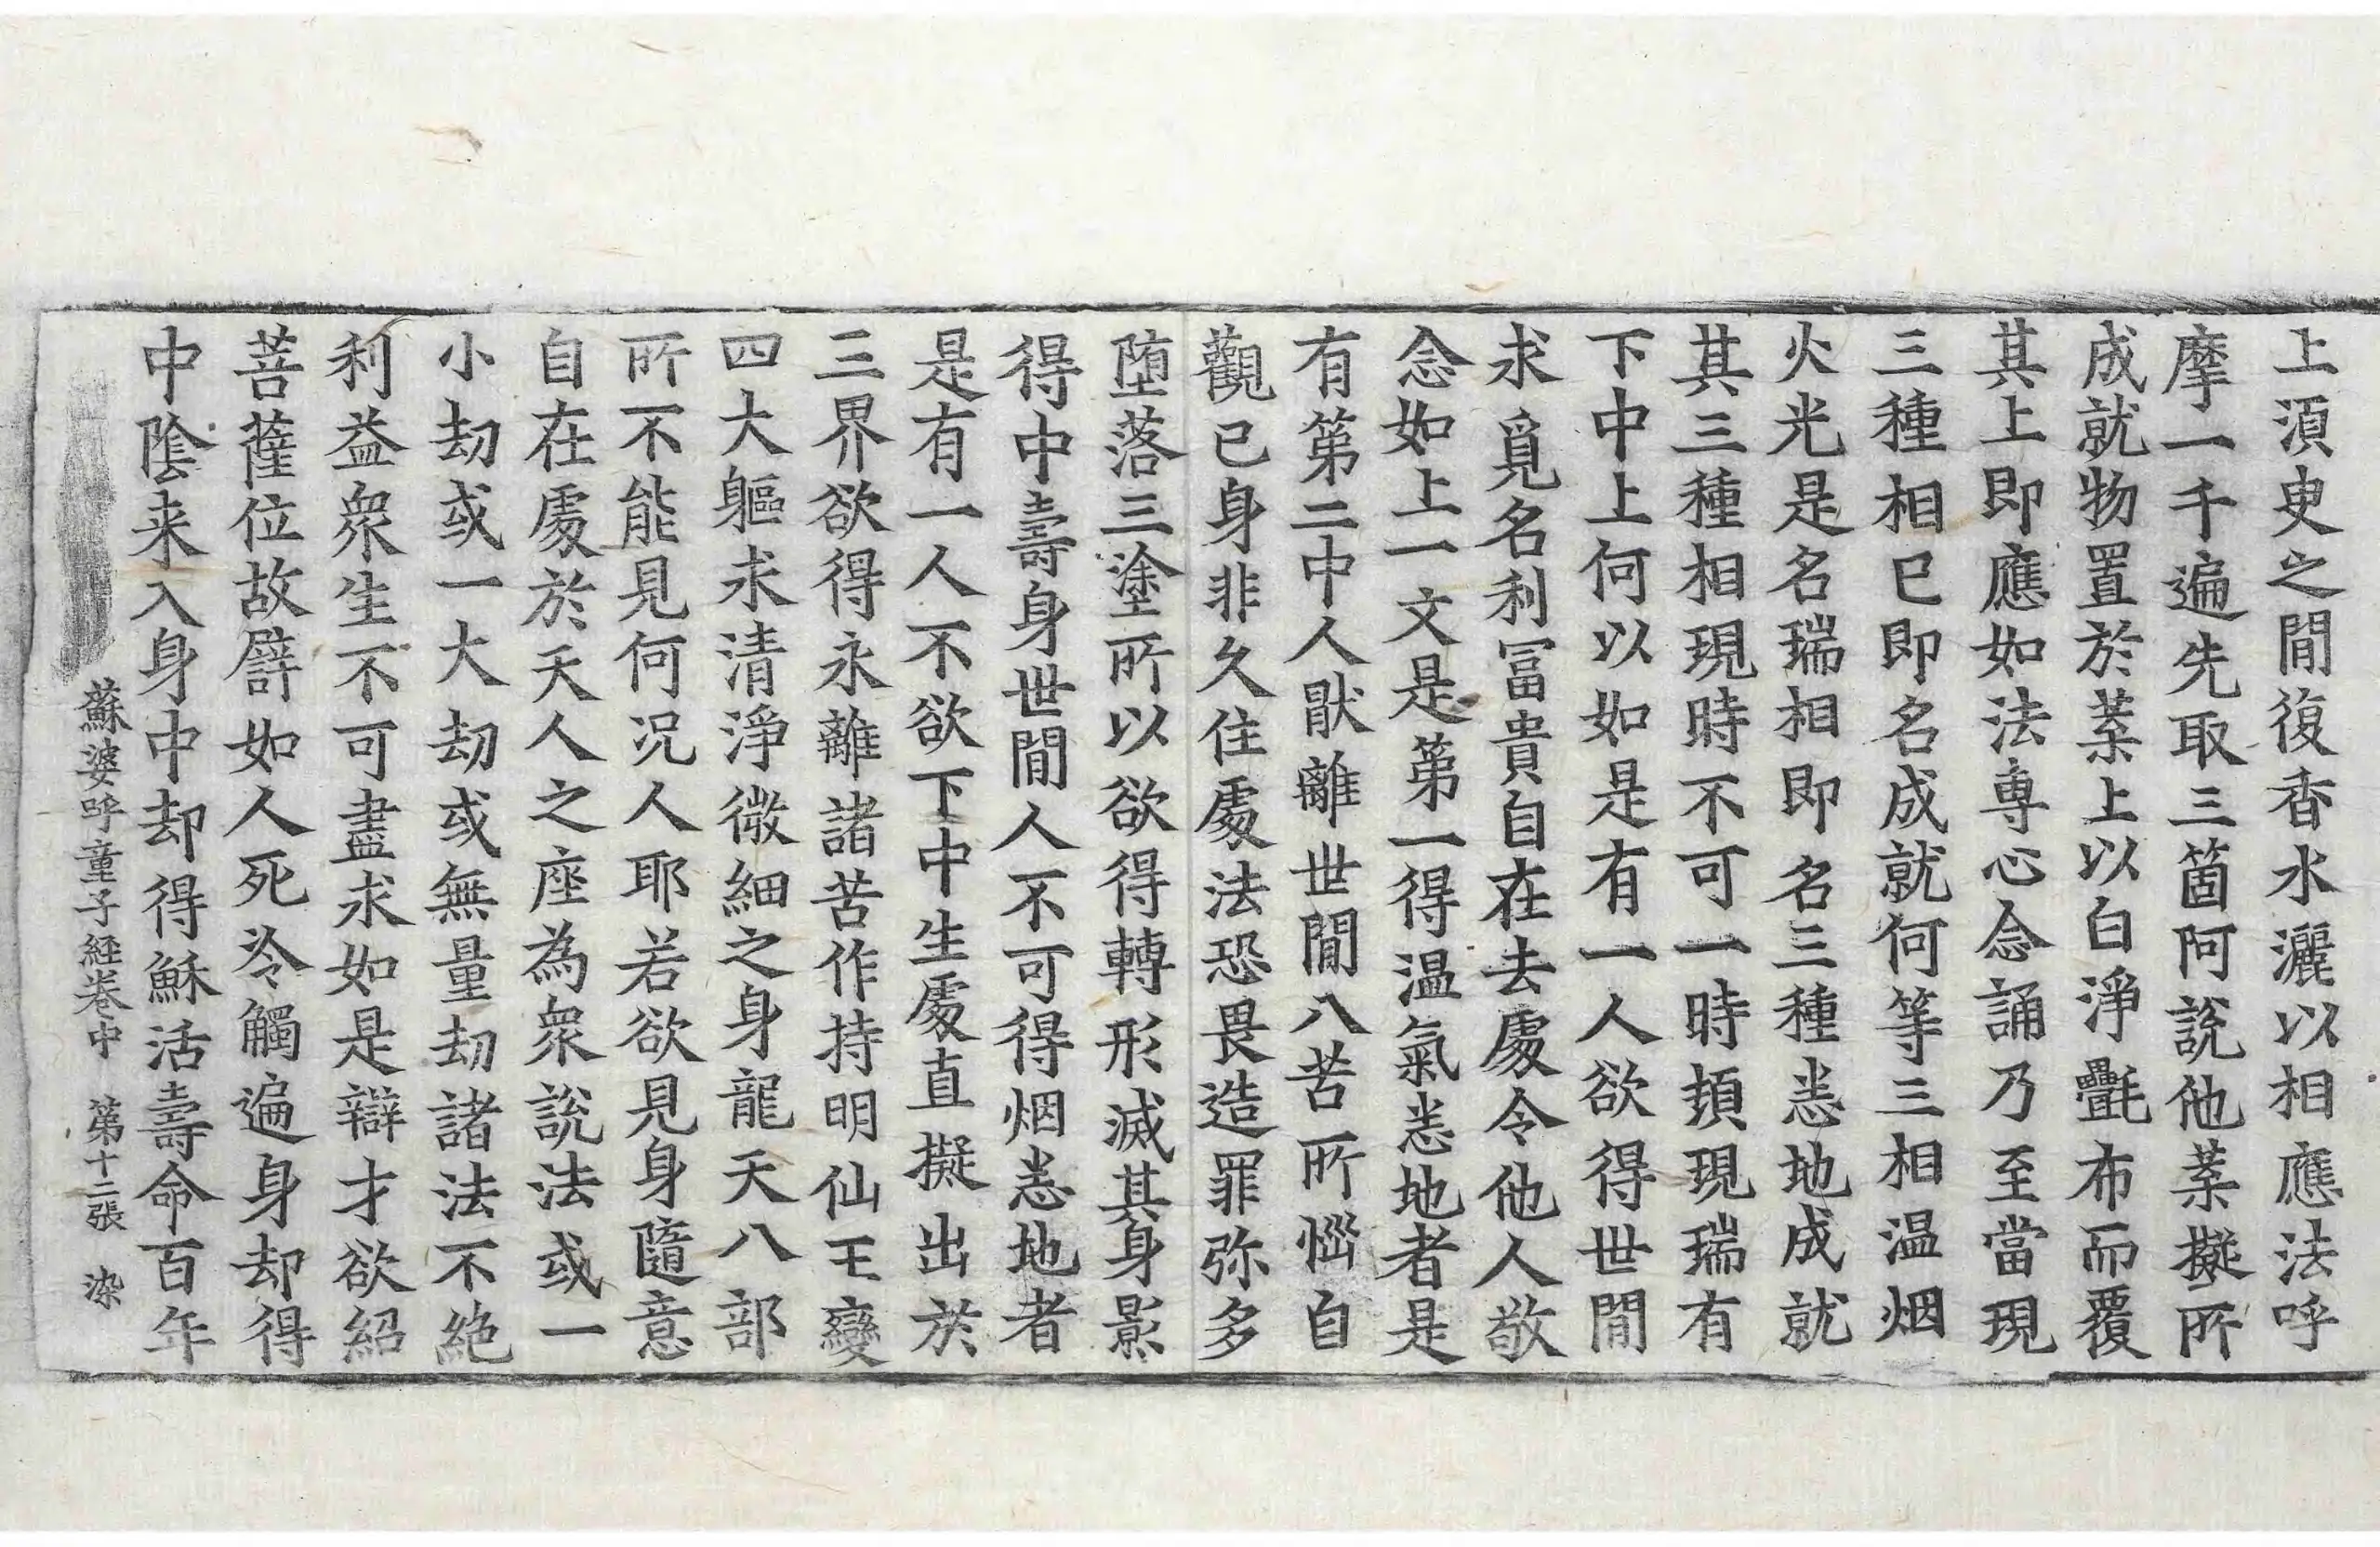 上湏㬰之間復香水灑以相應法呼
摩一千遍先取三箇阿說他葉擬所
成就物置於葉上以白淨㲲布而覆
其上即應如法專心念誦乃至當現
三種相已即名成就何等三相温烟
火光是名瑞相即名三種悉地成就
其三種相現時不可一時頓現瑞有
下中上何以如是有一人欲得世間
求覓名利冨貴自在去處令他人敬
念如上一文是第一得温氣悉地者是
有第二中人猒離世間八苦所惱自
觀已身非久住處法恐畏造罪弥多
墮落三塗所以欲得轉形滅其身影
得中壽身世間人不可得烟悉地者
是有一人不欲下中生處直擬出於
三界欲得永離諸苦作持明仙王變
四大軀求清淨微細之身龍天八部
所不能見何況人耶若欲見身隨意
自在處於天人之座為衆說法或一
小劫或一大劫或無量劫諸法不絶
利益衆生不可盡求如是辯才欲紹
菩薩位故譬如人死冷觸遍身却得
中陰来入身中却得穌活壽命百年
蘇婆呼童子経卷中 第十二張 染